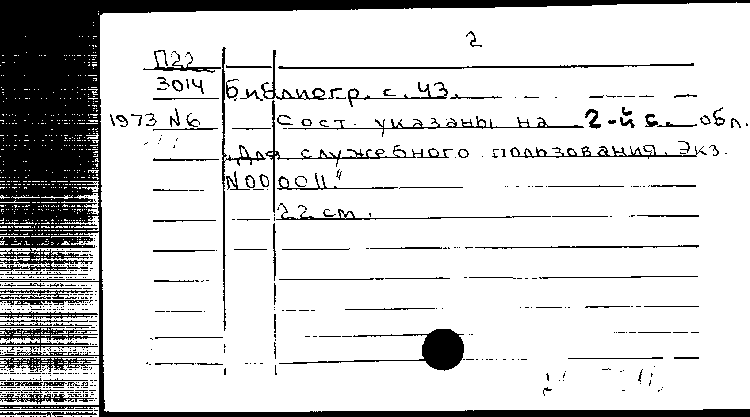 2
П22
3014
Библиогр. с. 43.
1973 №6 Сост. указаны на 2-й с. обл.
„Для служебного пользования. Экз.
№000011."
22 см.